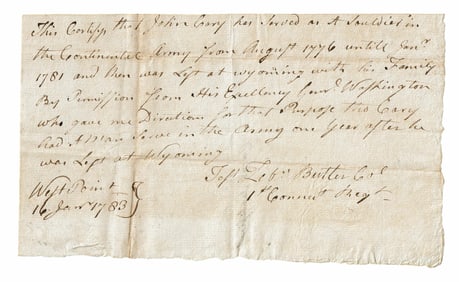 This Certifys that John Cary has Served as A Souldier in
the Continental Army from August 1776 untill Janry
1781 and then was Left at wyoming with his Family
By Permission from His Excellency Genl Washington
who gave me Directions for that Purpose tho Cary
had A Man Serve in the Army one year after he
was Left at Wyoming
Test Zebn Butler Col
1st Connect Regt
West Point
16 Janry 1783